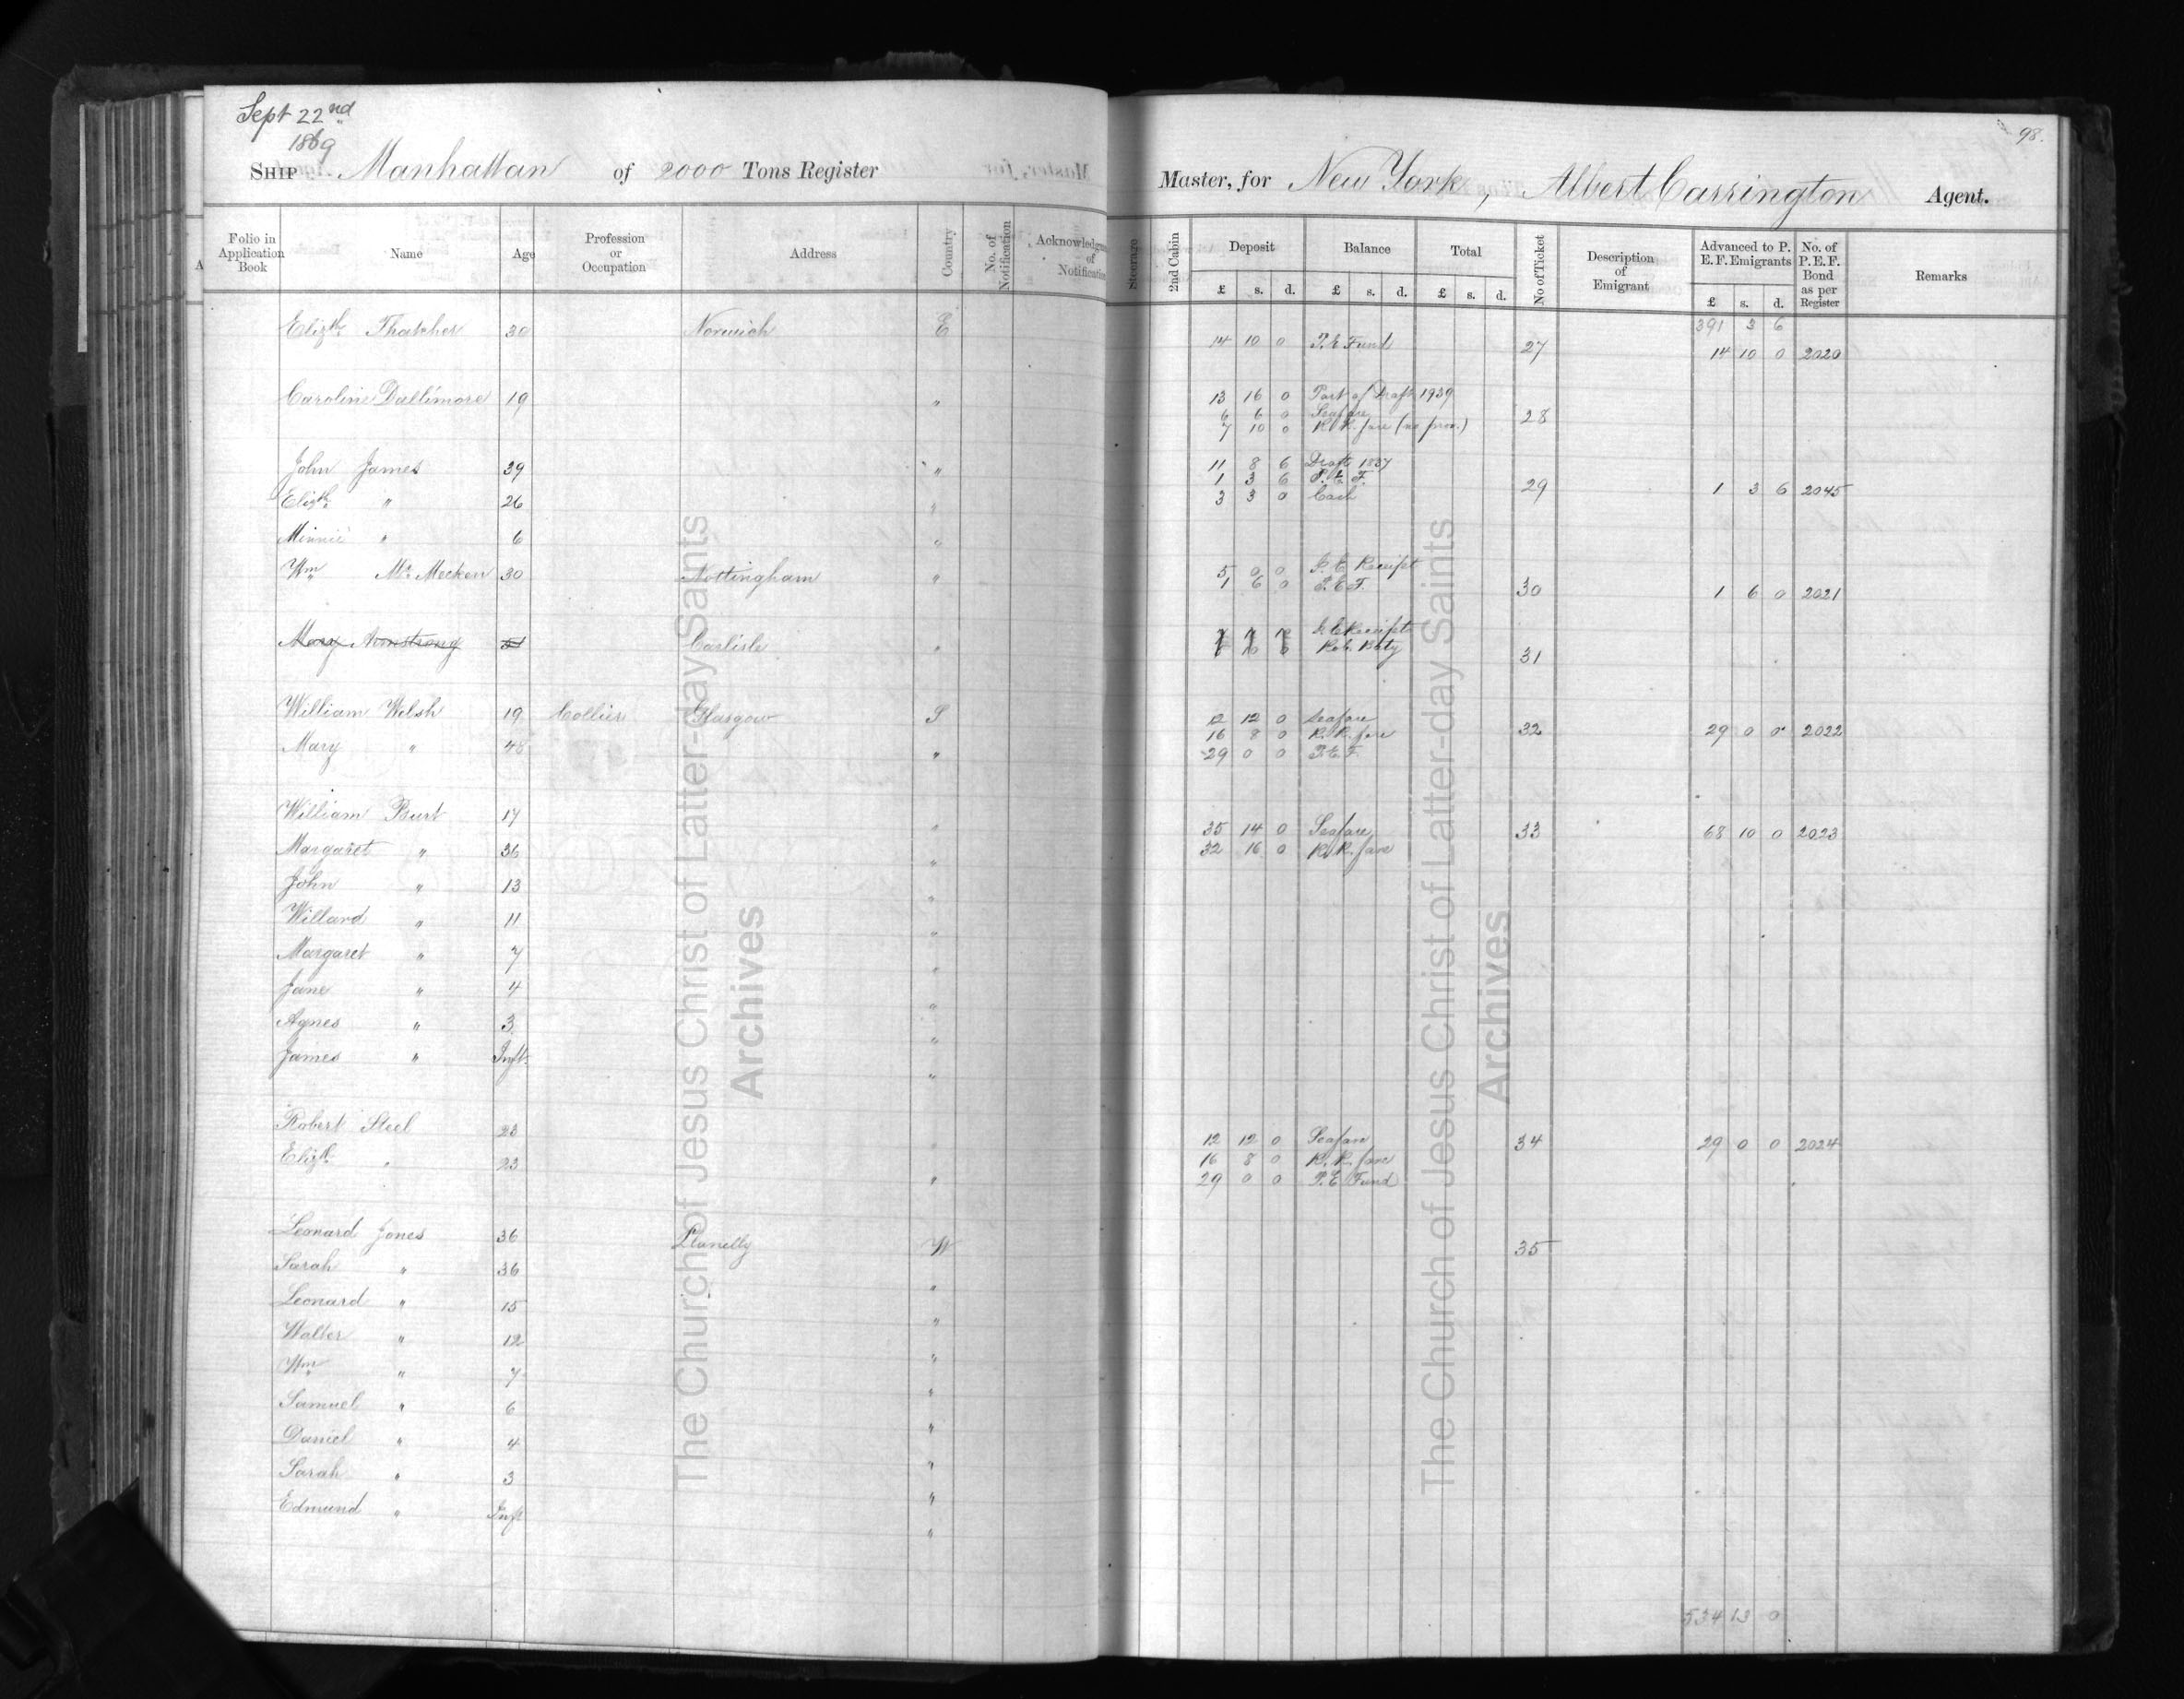 Sept 22nd
1869
98.
SHIP Manhattan of 2000 Tons Register Master, for New York, Albert Carrington Agent.
Folio in Application Book Name Age Profession or Occupation Address Country No. of Notification Acknowledgm of Notification Steerage 2nd Cabin Deposit Balance Total No of Ticket Description of Emigrant Advanced to P. E. F. Emigrants No. of P. E. F. Bond as per Register Remarks
£ s. d. £ s. d. £ s. d. £ s. d.
391 3 6
Elizth Thatcher 30 Norwich E 14 10 0 P. E Fund 27 14 10 0 2020
Caroline Dallimore 19 " 13 16 0 Part of Draft 1939 28
6 6 0 Seafare
7 10 0 R. R. fare (no prov.)
John James 39 " 11 8 6 Draft 1837 29 1 3 6 2045
1 3 6 P. E. F.
Elizth " 26 " 3 3 0 Cash
Minnie " 6 "
Wm Mc Mecken 30 Nottingham " 5 0 0 P. E Receipt 30 1 6 0 2021
1 6 0 P. E F.
Mary Armstrong Carlisle " P. E Receipt 31
Rob. Baty
William Welsh 19 Collier Glasgow S 12 12 0 Seafare 32 29 0 0 2022
16 8 0 R. R. fare
Mary " 48 " 29 0 0 P. E. F.
William Burt 17 " 35 14 0 Seafare 33 68 10 0 2023
Margaret " 36 " 32 16 0 R. R. fare
John " 13 "
Willard " 11 "
Margaret " 7 "
Jane " 4 "
Agnes " 3 "
James " Inft. "
Robert Steel 23 " 12 12 0 Seafare 34 29 0 0 2024
Elizth " 23 " 16 8 0 R. R. fare
29 0 0 P. E Fund
Leonard Jones 36 Llanelly W 35
Sarah " 36 "
Leonard " 15 "
Walter " 12 "
Wm " 7 "
Samuel " 6 "
Daniel " 4 "
Sarah " 3 "
Edmund " Inft "
534 13 0
The Church of Jesus Christ of Latter-day Saints
Archives
The Church of Jesus Christ of Latter-day Saints
Archives